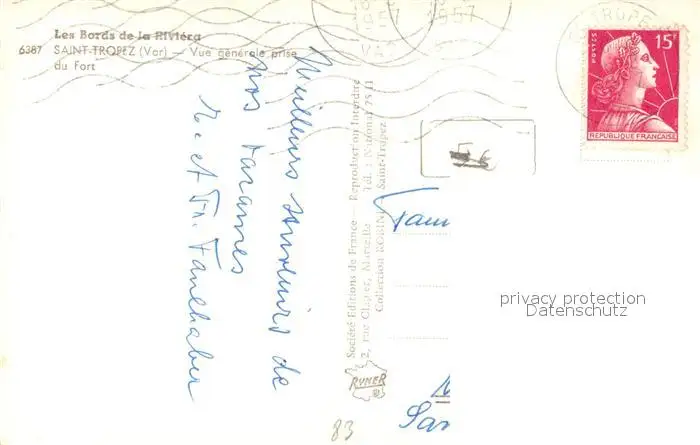 Les Bords de la Riviéra
6387 SAINT-TROPEZ (Var) — Vue générale prise
du Fort
Meilleurs souvenirs de
nos vacances
R. et Fr. Faulhaber
Société Editions de France — Reproduction Interdite
2, rue Clapier, Marseille Tél. : National 75-11
Collection Saint-Tropez
RYNER
1957
1957
VAR
POSTES
15F
REPUBLIQUE FRANÇAISE
5€
Fam
privacy protection
Datenschutz
83